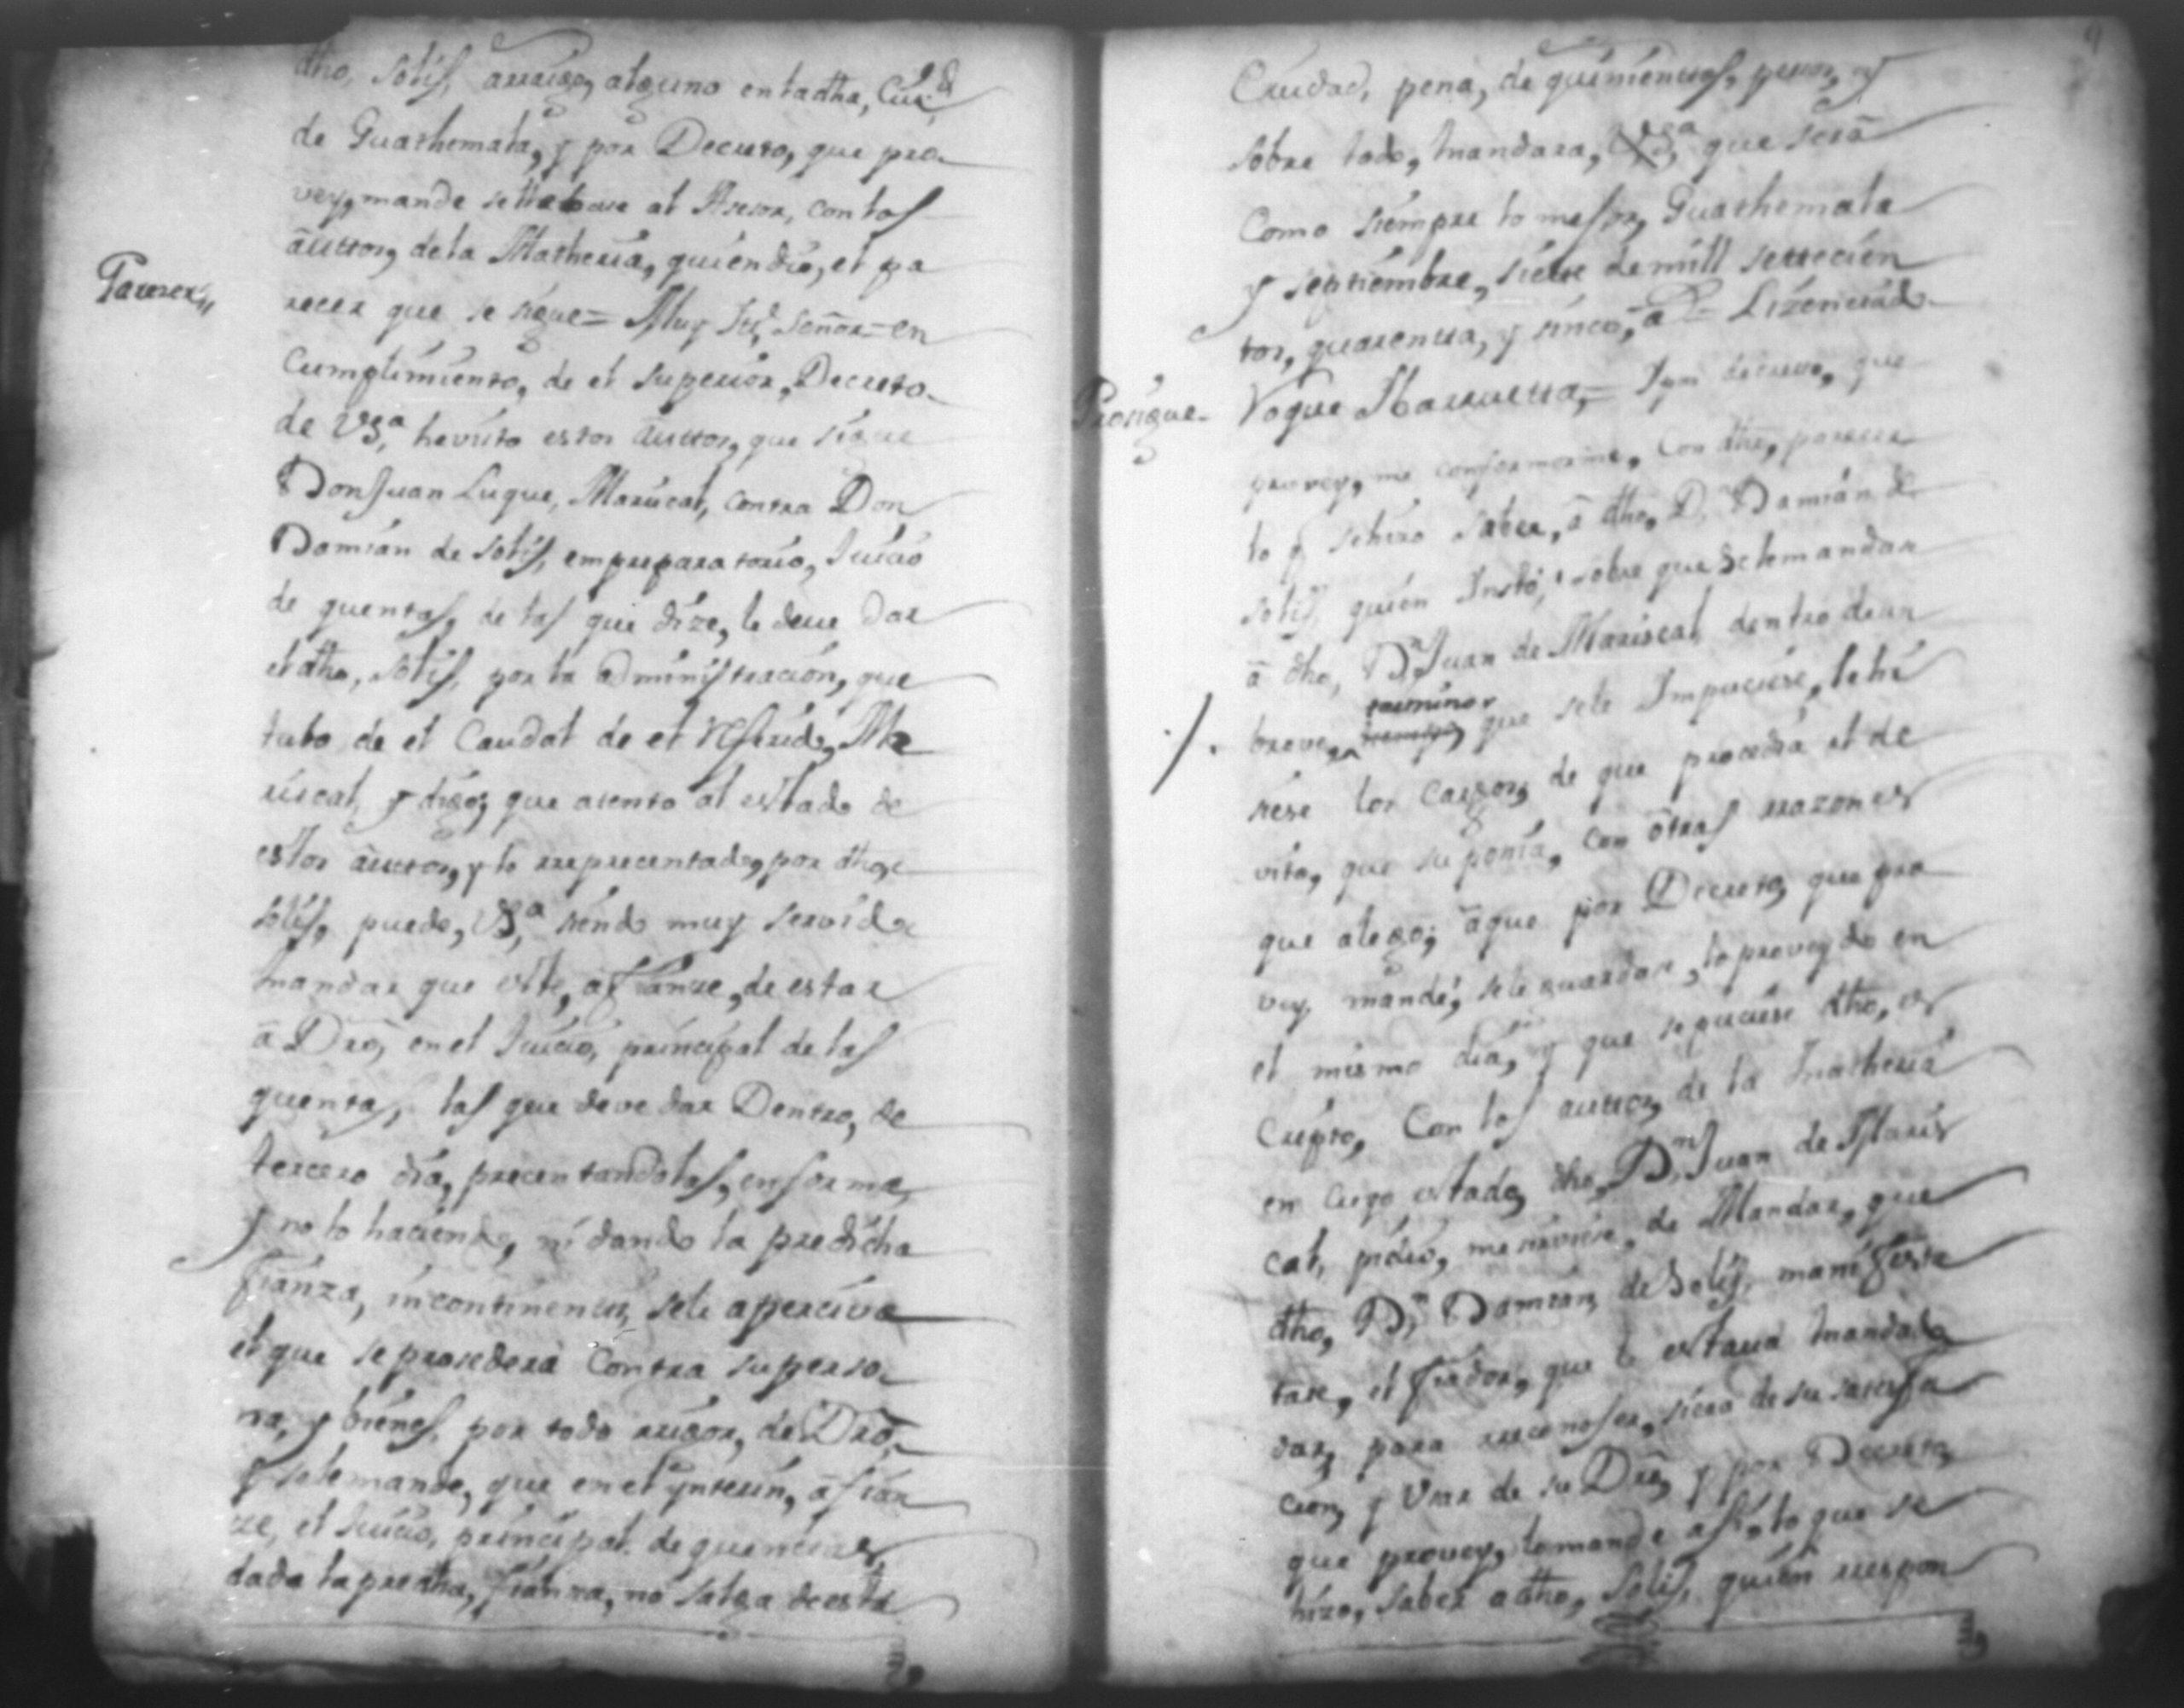 dho, Solis, arraigo, alguno en la dha, Ciud
de Guathemala, y por Decreto, que pro
vey, mande se llebase al Asesor, con los
auttos, de la Matheria, quien dio, el pa
Parecer,,
recer que se sigue = Muy Iltd Señor = en
Cumplimiento, de el superior, Decreto
de VSa, he visto estos auttos, que sigue
Don Juan Luque, Mariscal, contra Don
Damian de Solis, em preparatorio, Juicio
de quentas, de las que dize, le deve dar
el dho, Solis, por la administracion, que
tubo de el Caudal de el Referido, Ma
riscal, y digo, que atento al estado de
estos auttos, y lo rrepresentado, por dho,
Solis, puede, VSa, siendo muy servido
mandar que este, afianze, de estar
â Dro, en el Juicio, principal de las
quentas, las que deve dar Dentro, de
tercero dia, precentandolas, en forma,
y no lo haciendo, ni dando la predicha
fianza, incontinenti, se le aperciva
el que se procedera Contra su perso
na, y bienes, por todo rrigor, de Dro,
y se le mande, que en el ynterin, âfian
ze, el Juicio, principal de quentas,
dada la predha, fianza, no salga de esta
9
Ciudad, pena, de quinientos, pesos, y
sobre todo, mandara, VSa, que sera
Como siempre lo mejor, Guathemala
y septiembre, siete de mill settecien
tos, quarenta, y sinco, as = Lizenciado
Prosigue
Roque Ibarrueta, = Y por decreto, que
provey, me conformorme, Con dho, parecer
lo q se hizo saber, â dho, D. Damian de
Solis, quien Instó, sobre que se le mandase
â dho, Dn Juan de Mariscal, dentro de un
termino
breve, tiempo, que se le Impuciese, le hi
siese los cargos, de que procedia el de
vito, que suponia, con otras rrazones
que alego; âque por Decreto, que pro
vey, mandé, se le guardase, lo proveydo en
el mismo dia, y que se puciese dho, es
Cripto, Con los auttos, de la Matheria
en cuyo estado, dho, Dn Juan de Maris
cal, pidio, me sirviese, de Mandar, que
dho, Dn Damian, de Solis, manifesta
tase, el fiador, que le estava mandado
dar, para rreconoser, si era de su satisfa
cion, y Usar de su Dro, y por Decreto,
que provey, lo mande asi, lo que se
hizo, saber a dho, Solis, quien rrespon